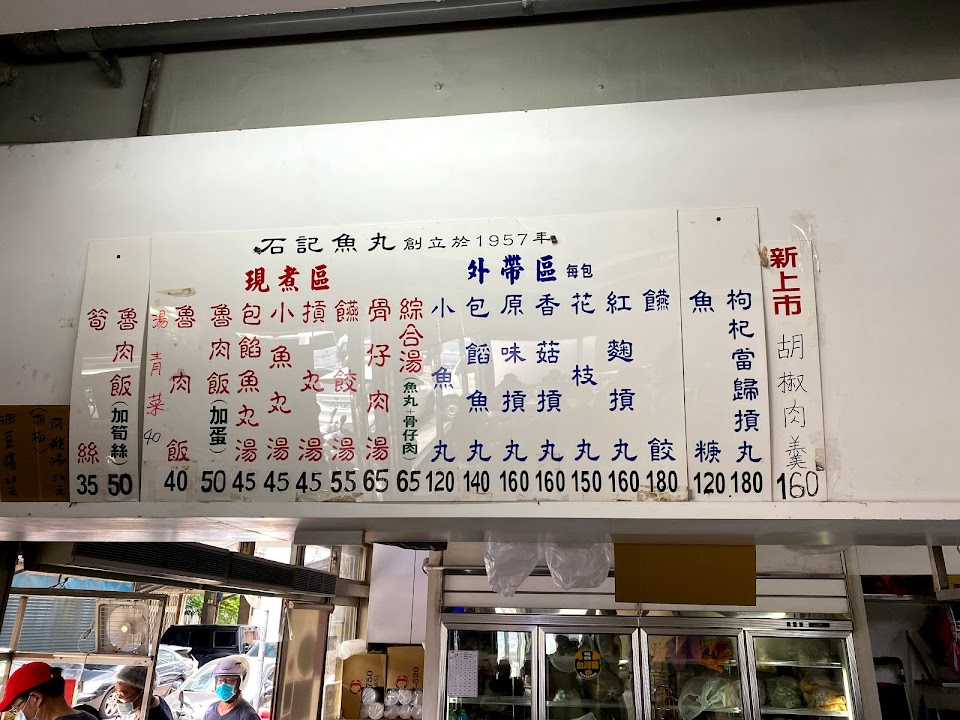 石記魚丸創立於1957年
現煮區
筍絲 35
魯肉飯(加筍絲) 50
湯青菜 40
魯肉飯 40
魯肉飯(加蛋) 50
包餡魚丸湯 45
小魚丸湯 45
摃丸湯 45
餛餃湯 55
骨仔肉湯 65
綜合湯(魚丸+骨仔肉) 65
外帶區 每包
小魚丸 120
包餡魚丸 140
原味摃丸 160
香菇摃丸 160
花枝丸 150
紅麴摃丸 160
餛餃 180
魚糖 120
枸杞當歸摃丸 180
新上市
胡椒肉羹
160